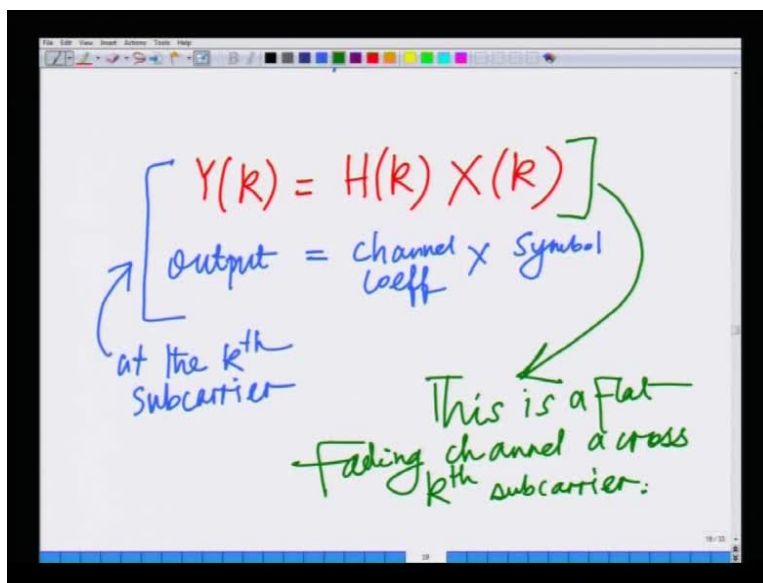 File Edit View Insert Actions Tools Help
Y(k) = H(k) X(k)
output = channel coeff × symbol
at the kth
subcarrier
This is a flat
fading channel across
kth subcarrier.
19/33
19